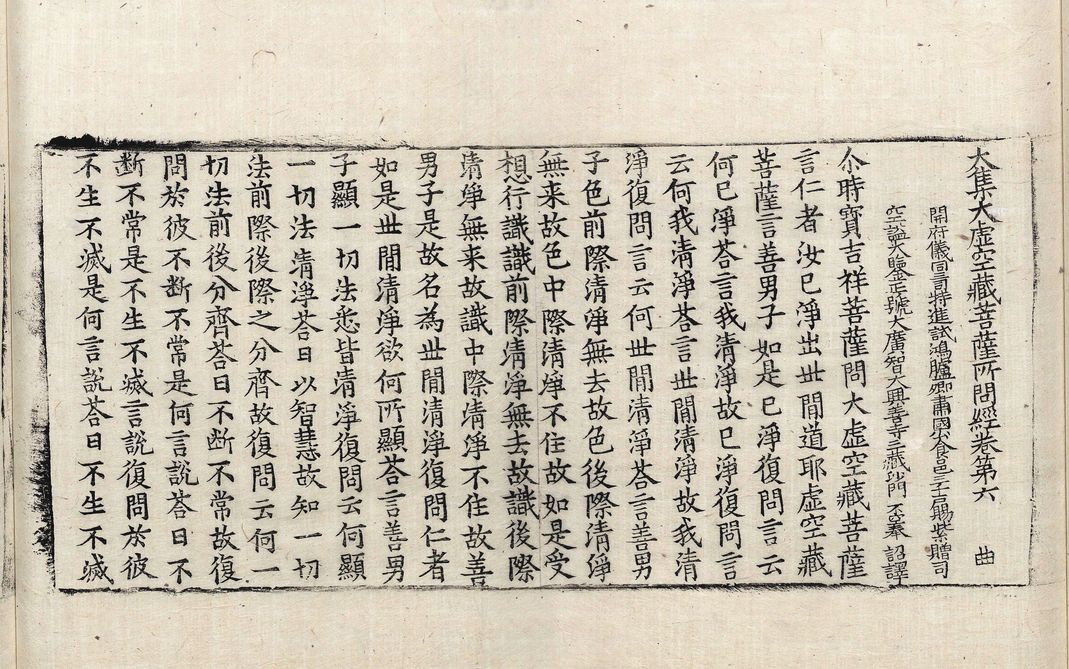 大集大虛空藏菩薩所問經卷第六 曲
開府儀同三司特進試鴻臚卿肅國公食邑三千戶賜紫贈司
空謚大鑒正號大廣智大興善寺三藏沙門 不空奉 詔譯
尒時寶吉祥菩薩問大虛空藏菩薩
言仁者汝已淨出世閒道耶虛空藏
菩薩言善男子如是已淨復問言云
何已淨荅言我清淨故已淨復問言
云何我清淨荅言世閒清淨故我清
淨復問言云何世閒清淨荅言善男
子色前際清淨無去故色後際清淨
無来故色中際清淨不住故如是受
想行識識前際清淨無去故識後際
清淨無来故識中際清淨不住故善
男子是故名為世閒清淨復問仁者
如是世閒清淨欲何所顯荅言善男
子顯一切法悉皆清淨復問云何顯
一切法清淨荅曰以智慧故知一切
法前際後際之分齊故復問云何一
切法前後分齊荅曰不断不常故復
問於彼不断不常是何言說荅曰不
断不常是不生不滅言說復問於彼
不生不滅是何言說荅曰不生不滅